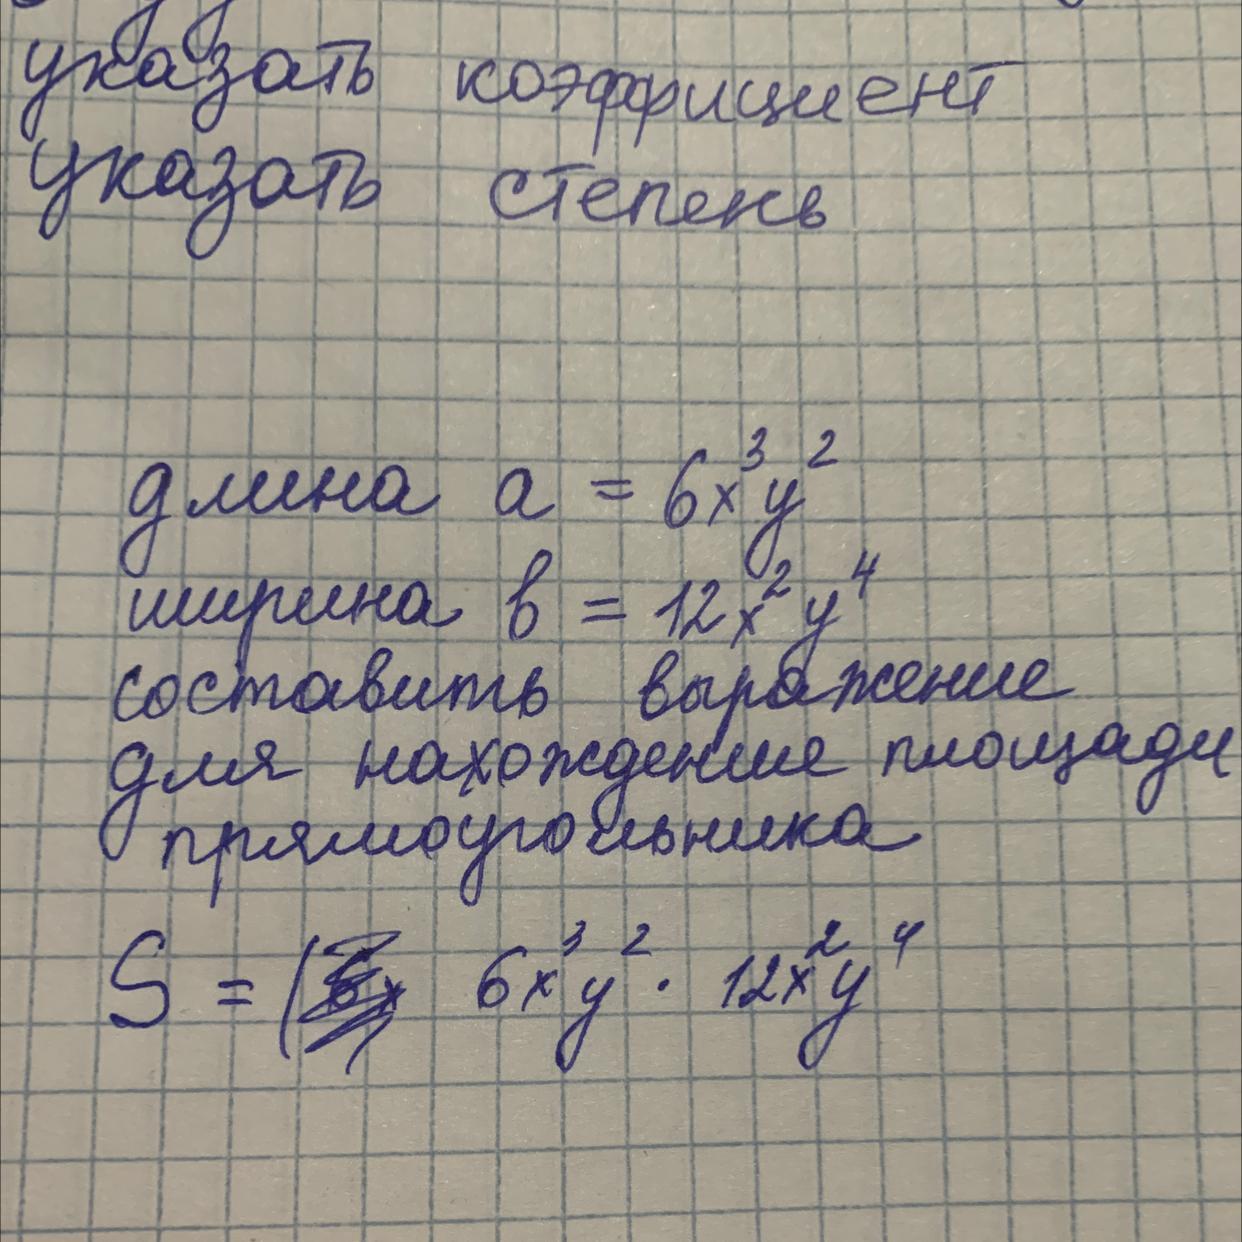 указать коэффициент
указать степень
длина a = 6x³y²
ширина b = 12x²y⁴
составить выражение
для нахождение площади
прямоугольника
S = ( 6x³y² · 12x²y⁴